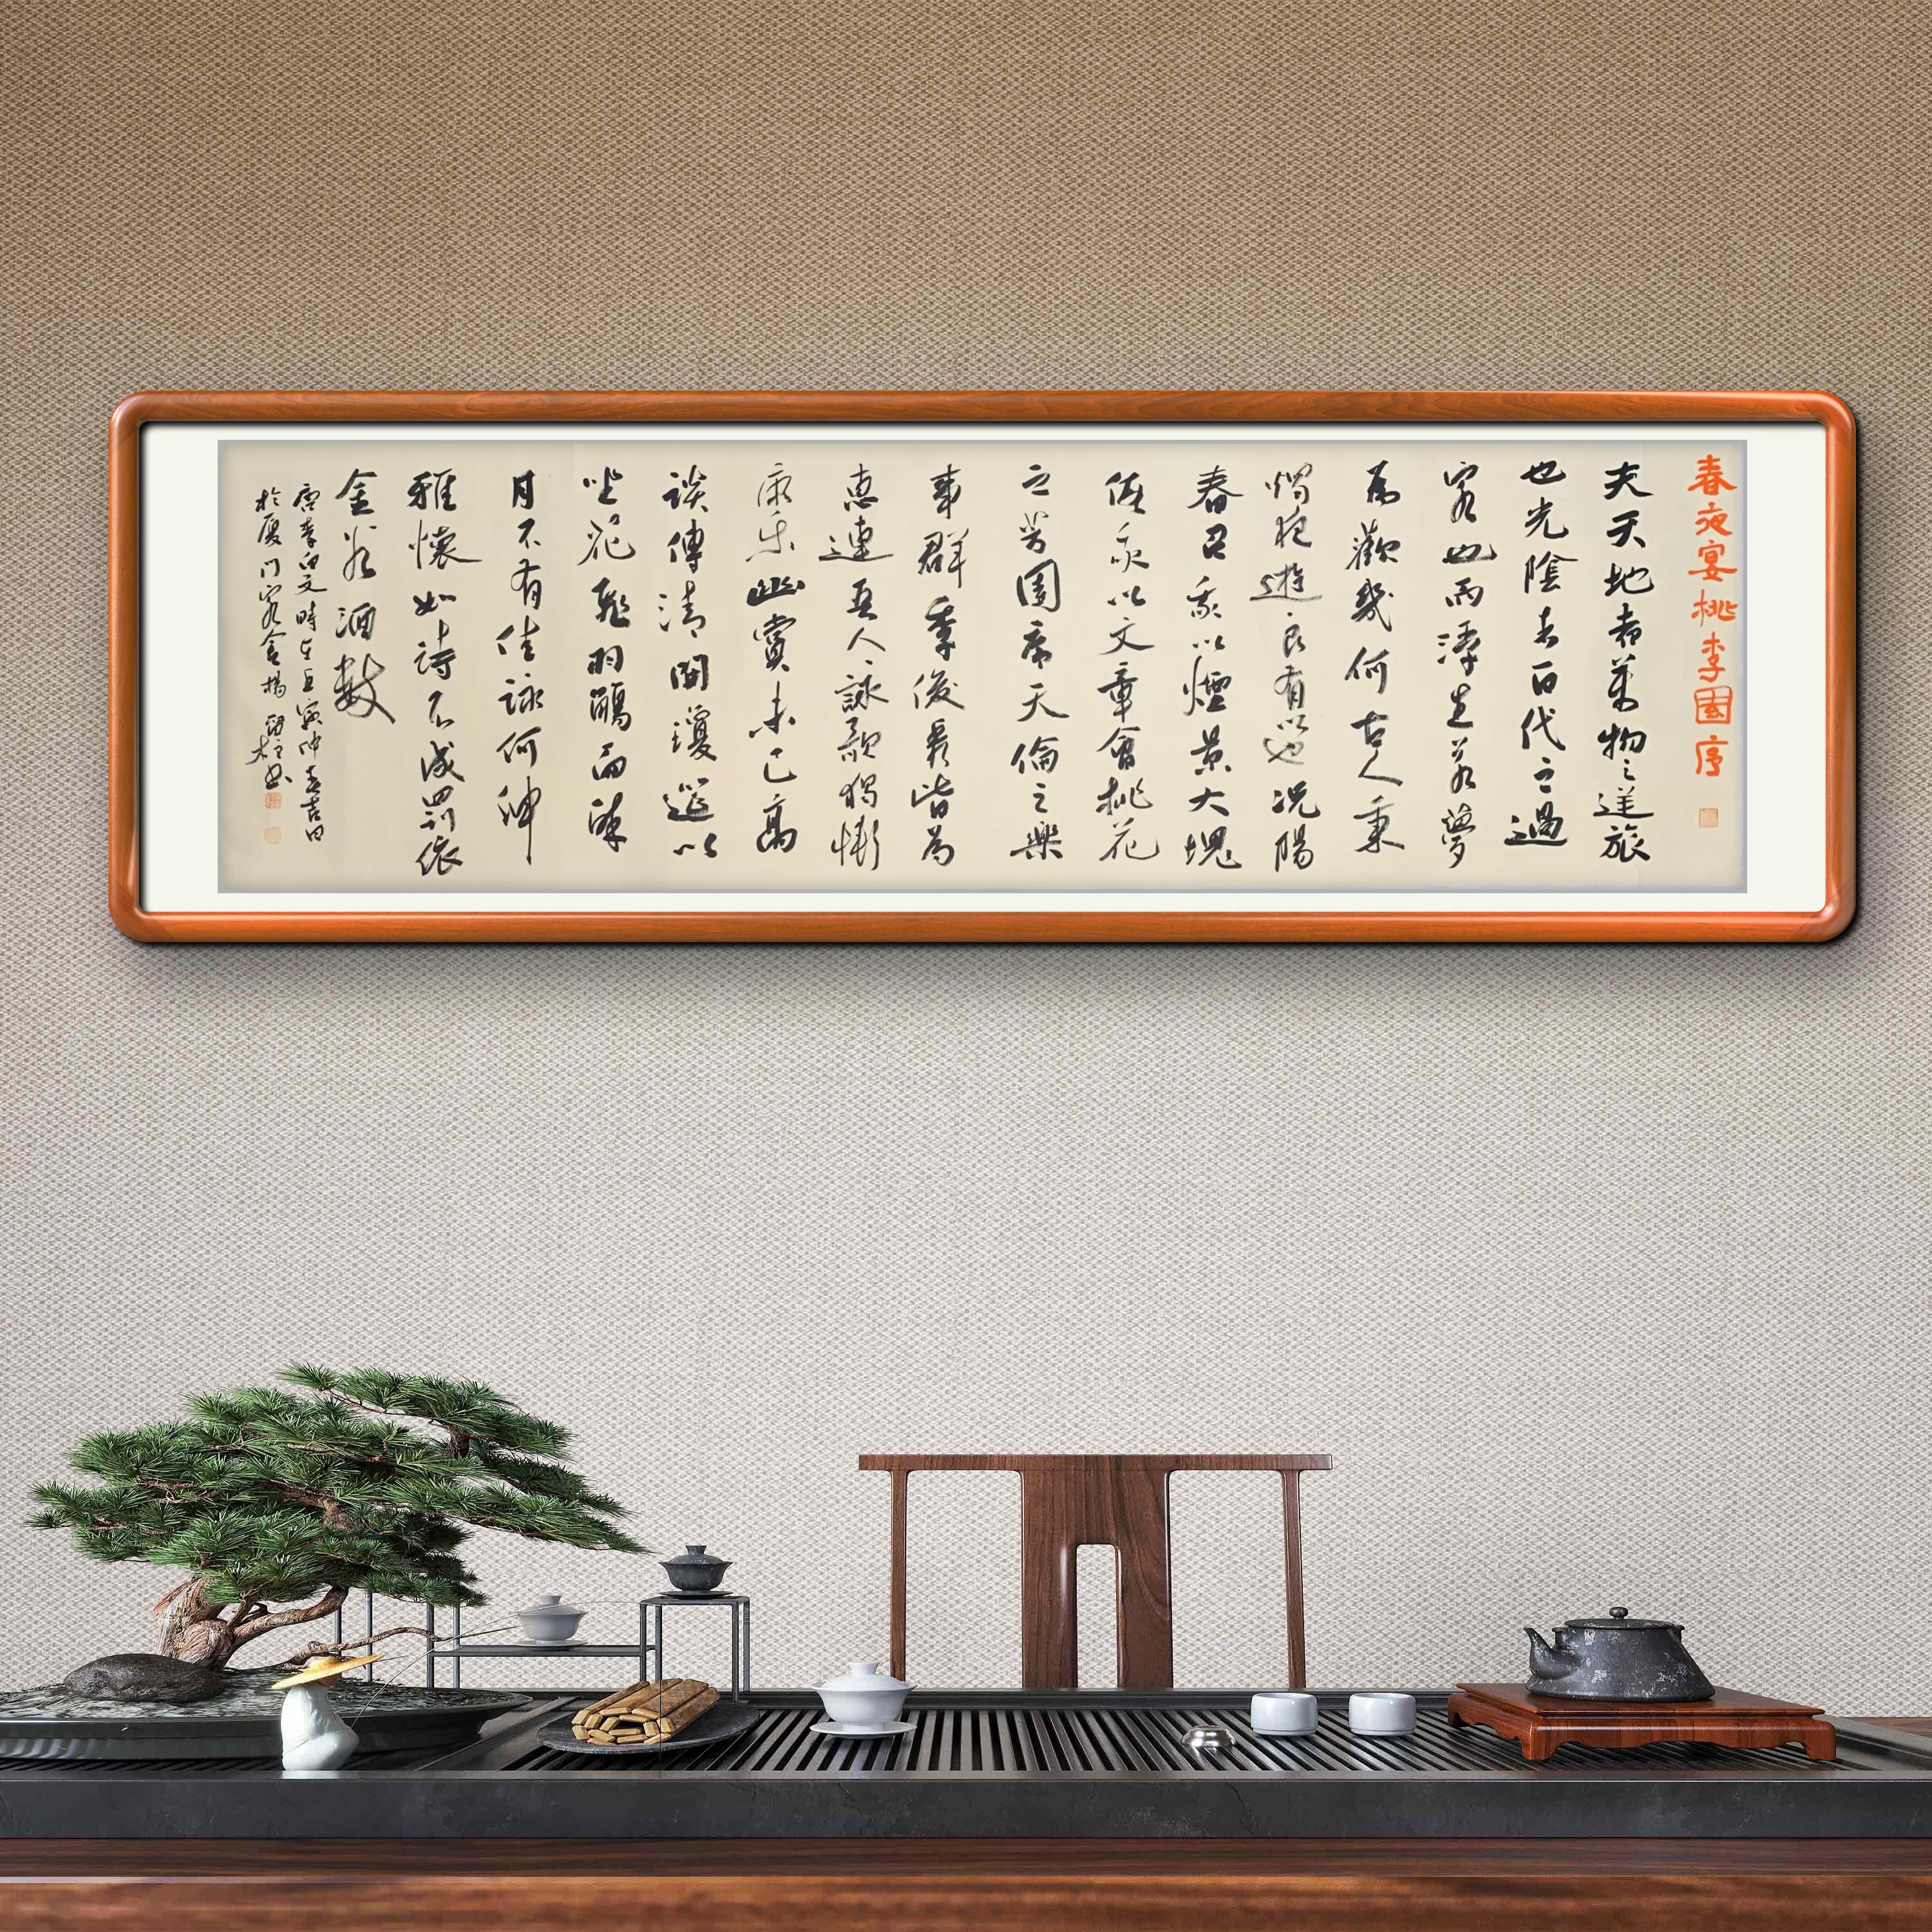 春夜宴桃李園序
夫天地者萬物之逆旅
也光陰者百代之過
客也而浮生若夢
為歡幾何古人秉
燭夜遊良有以也況陽
春召我以煙景大塊
假我以文章會桃花
之芳園序天倫之樂
事群季俊秀皆為
惠連吾人詠歌獨慚
康樂幽賞未已高
談轉清開瓊筵以
坐花飛羽觴而醉
月不有佳詠何伸
雅懷如詩不成罰依
金谷酒數
唐李白文時在壬寅仲春吉日
於廈門客舍楊